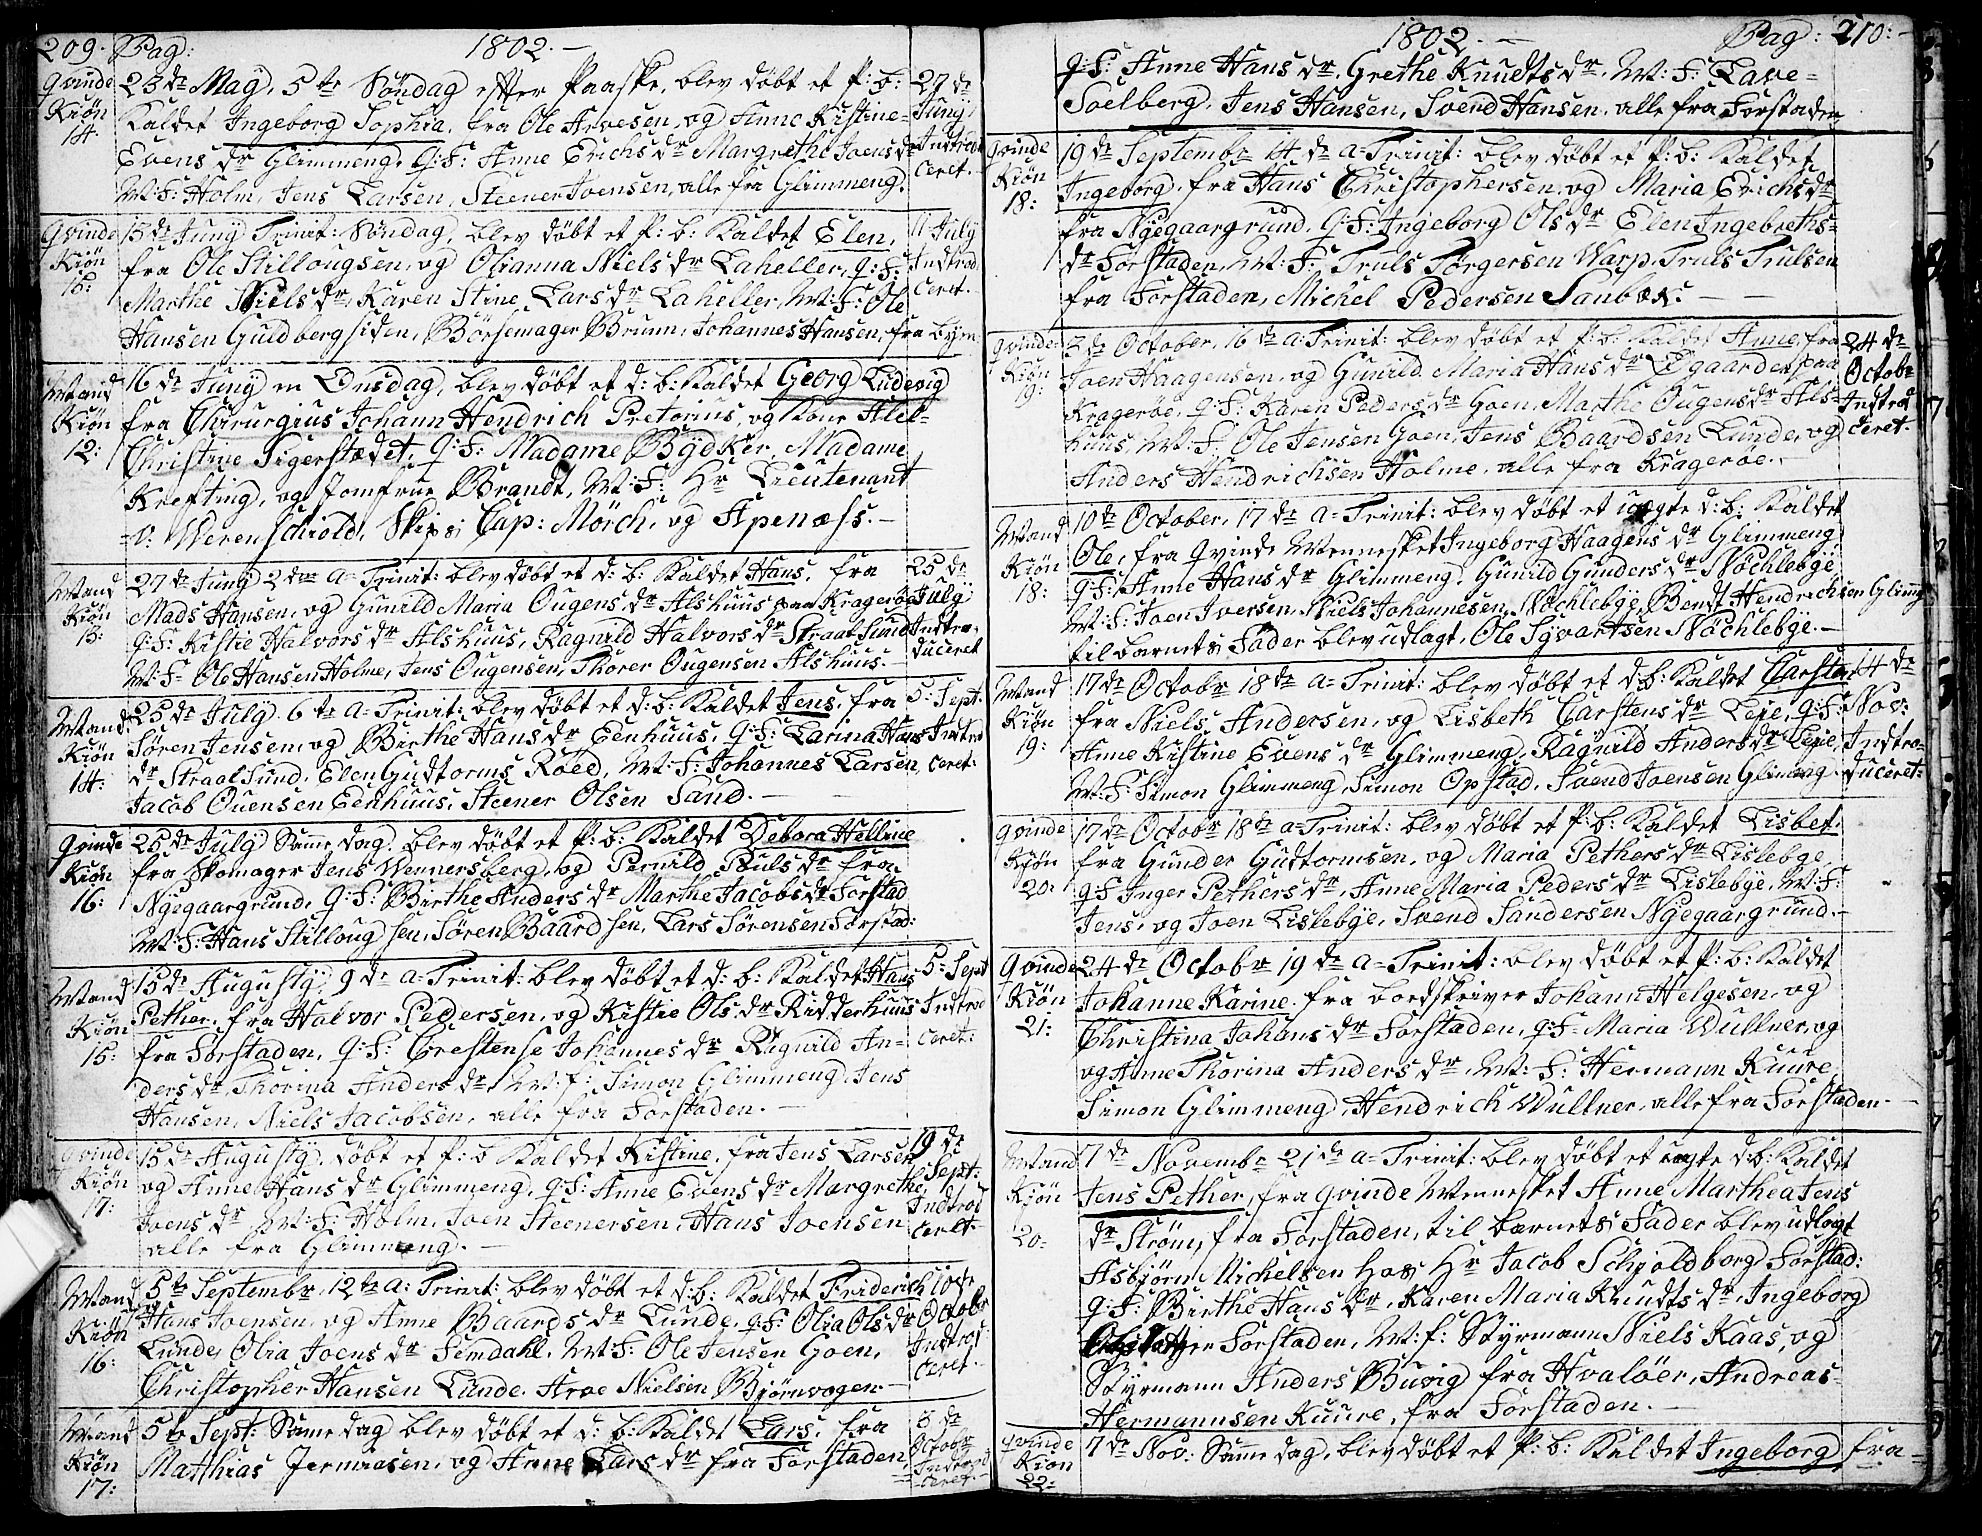 209. Pag: 1802.
Qvinde Kiøn 14.
23de Maÿ, 5te Søndag efter Paaske, blev døbt et P: B:
Kaldet Ingeborg Sophia, fra Ole Arvesen, og Anne Kistine
Evens dr Glimmeng. Q: F: Anne Erichs dr Margrethe Joens dr
M: F: Holm, Jens Larsen, Steener Joensen, alle fra Glimmeng.
27de Junÿ Introd ceret.
Qvinde Kiøn 15:
13de Junÿ Trinit: Søndag, blev døbt et P: b: Kaldet Elen,
fra Ole Stillougsen, og Olianna Niels dr Laheller, Q: F:
Marthe Niels dr, Karen Stine Lars dr Laheller, M: F: Ole
Hansen Guldbergsiden, Børsemager Brunn, Johannes Hansen, fra bÿen
11 Julÿ Introd ceret.
Mand Kiøn 12:
16de Junÿ en Onsdag, blev døbt et d: b: Kaldet Georg Ludevig
fra Chirurgius Johann Hendrich Pretorius, og Kone
Christine Sigerstædet, Q: F: Madame Bÿdker, Madame
Krefting, og Jomfrue Brandt, M: F: Hr Lieutenant
v: Werenschiold, Skips Cap: Mörch, og Apenæss.
Mand Kiøn 13:
27de Junÿ 2den a= Trinit: blev døbt et d: b: Kaldet Hans, fra
Mads Hansen, og Gunild Maria Ougens dr Alshuus paa Kragerøe
Q: F: Kistie Halvors dr Alshuus, Ragnild Halvors dr Straal Sund
M: F: Ole Hansen Holme, Jens Ougensen, Thorer Ougensen Alshuus.
25de Julÿ Indtro= duceret
Mand Kiøn 14:
25de Julÿ 6te a= Trinit: blev døbt et d: b: Kaldet Jens, fra
Søren Jensen, og Birthe Hans dr Eenhuus, Q: F: Larina Hans
dr Straal Sund, Elen Gudtorms Roed, M: F: Johannes Larsen,
Jacob Ouensen Eenhuus, Steener Olsen Sand.
5: Sept: Indtrod ceret:
Qvinde Kiøn 16:
25de Julÿ Samme dag, blev døbt et P: b: Kaldet Debora Helline
fra Skomager Jens Wennersberg, og Pernild Pouls dr fra
Nÿegaargrund, Q: F: Birthe Anders dr Marthe Jacobs dr Forstad
M: F: Hans Stillougsen, Søren Baardsen, Lars Sørensen Forstad:
Mand Kiøn 15:
15de Augustÿ, 9de a= Trinit: blev døbt et d: b: Kaldet Hans
Pether, fra Halvor Pedersen, og Kistie Ols dr Ridderhuus
fra Forstaden, Q: F: Crestense Johannes dr Ragnild An=
ders dr, Thorina Anders dr, M: f: Simon Glimmeng, Jens
Hansen, Niels Jacobsen, alle fra Forstaden.
5: Sept Indtrod ceret:
Qvinde Kiøn 17:
15de Augustÿ, døbt et P: b Kaldet Kistine, fra Jens Larsen
og Anne Hans dr Glimmeng, Q: F: Anne Evens dr Margrethe
Joens dr M: F: Holm, Joen Steenersen, Hans Joensen
alle fra Glimmeng.
19de Sept: Indtrod ceret:
Mand Kiøn 16:
5te Septembr, 12te a: Trinit: blev døbt et d: b: Kaldet Friderich
Hans Joensen, og Anne Baards dr Lunde, Q: F: Olia Ols dr
Lunde, Olia Joens dr Femdahl, M: F: Ole Jensen Goen,
Christopher Hansen Lunde, Arve Nielsen Bjørnvogen
10de Octobr Indtrod ceret
Mand Kiøn 17:
5te Sept: Samme dag blev døbt et d: b: Kaldet Lars, fra
Matthias Jermiasen, og Anne Lars dr fra Forstaden,
3de Octobr Indtrod ceret.
1802. Pag: 210:
Q: F: Anne Hans dr, Grethe Knudts dr, M: F: Lave=
Soelberg, Jens Hansen, Svend Hansen, alle fra Forstaden
Qvinde Kiøn 18:
19de Septembr 14de a= Trinit: blev døbt et P: b: Kaldet
Ingeborg, fra Hans Christophersen, og Maria Erichs dr
fra Nÿegaargrund, Q: F: Ingeborg Ols dr Elen Ingebreths=
dr Forstaden, M: F: Truls Torgersen Warp, Truls Trulsen
fra Forstaden, Michel Pedersen Sanbæk:
Qvinde Kiøn 19:
3de October, 16de a: Trinit: blev døbt et P: b: Kaldet Anne, fra
Joen Haagensen, og Gunild Maria Hans dr Øegaarden paa
Kragerøe, Q: F: Karen Peders dr Goen, Marthe Ougens dr Als=
huus, M: F: Ole Jensen Goen, Jens Baardsen Lunde, og
Anders Hendrichsen Holme, alle fra Kragerøe.
24de Octobr Indtrod ceret.
Mand Kiøn 18:
10de October, 17de a= Trinit: blev døbt et uægte d: b: Kaldet
Ole, fra Qvinde Mennesket Ingeborg Haagens dr Glimmeng
Q: F: Anne Hans dr Glimmeng, Gunild Gunders dr Nöchlebÿe
M: F: Joen Iversen, Niels Johannesen, Nöchlebÿe, Bendt Hendrichsen Glimg
til barnets Fader blev udlagt, Ole Sÿvartsen Nöchlebÿe.
Mand Kiøn 19:
17de Octobr 18de a= Trinit: blev døbt et d: b: Kaldet Carsten
fra Niels Andersen, og Lisbeth Carstens dr Leje, Q: F:
Anne Kistine Evens dr Glimmeng, Ragnild Anders dr Leje,
M: F: Simon Glimmeng, Simon Opstad, Svend Joensen Glimeng
14de Nov: Indtro= duceret:
Qvinde Kiøn 20:
17de Octobr 18de a= Trinit: blev døbt et P: b: Kaldet Lisbet:
fra Gunder Gudtormsen, og Maria Pethers dr Lislebÿe
Q: F Inger Pethers dr, Anne Maria Peders dr Lislebÿe, M: F:
Jens, og Joen Lislebÿe, Svend Sandersen Nÿegaargrund.
Qvinde Kiøn 21:
24de Octobr 19de a= Trinit: blev døbt et P: b: Kaldet
Johanne Karine, fra bordskriver Johann Helgesen, og
Christina Johans dr Forstaden, Q: F: Maria Wullner, og
og Anne Thorina Anders dr, M: F: Hermann Kuure,
Simon Glimmeng, Hendrich Wullner, alle fra Forstaden.
Mand Kiøn 20:
7de Novembr 21de a= Trinit: blev døbt et uægte d: b: Kaldet
Jens Pether, fra Qvinde Mennesket Anne Marthea Jens
dr Strøm, fra Forstaden, til barnets Fader blev udlagt
Asbjørn Michelsen hos Hr Jacob Schjoldborg Forstad:
Q: F: Birthe Hans dr, Karen Maria Knudts dr, Ingeborg
Forstaden, M: f: Stÿrmann Niels Kaas, og
Stÿrmann Anders Buvig fra Hvaløer, Andreas
Hermannsen Kuure, fra Forstaden.
Qvinde Kiøn 22:
7de Nov: Samme dag, blev døbt et P: b: Kaldet Ingeborg fra=